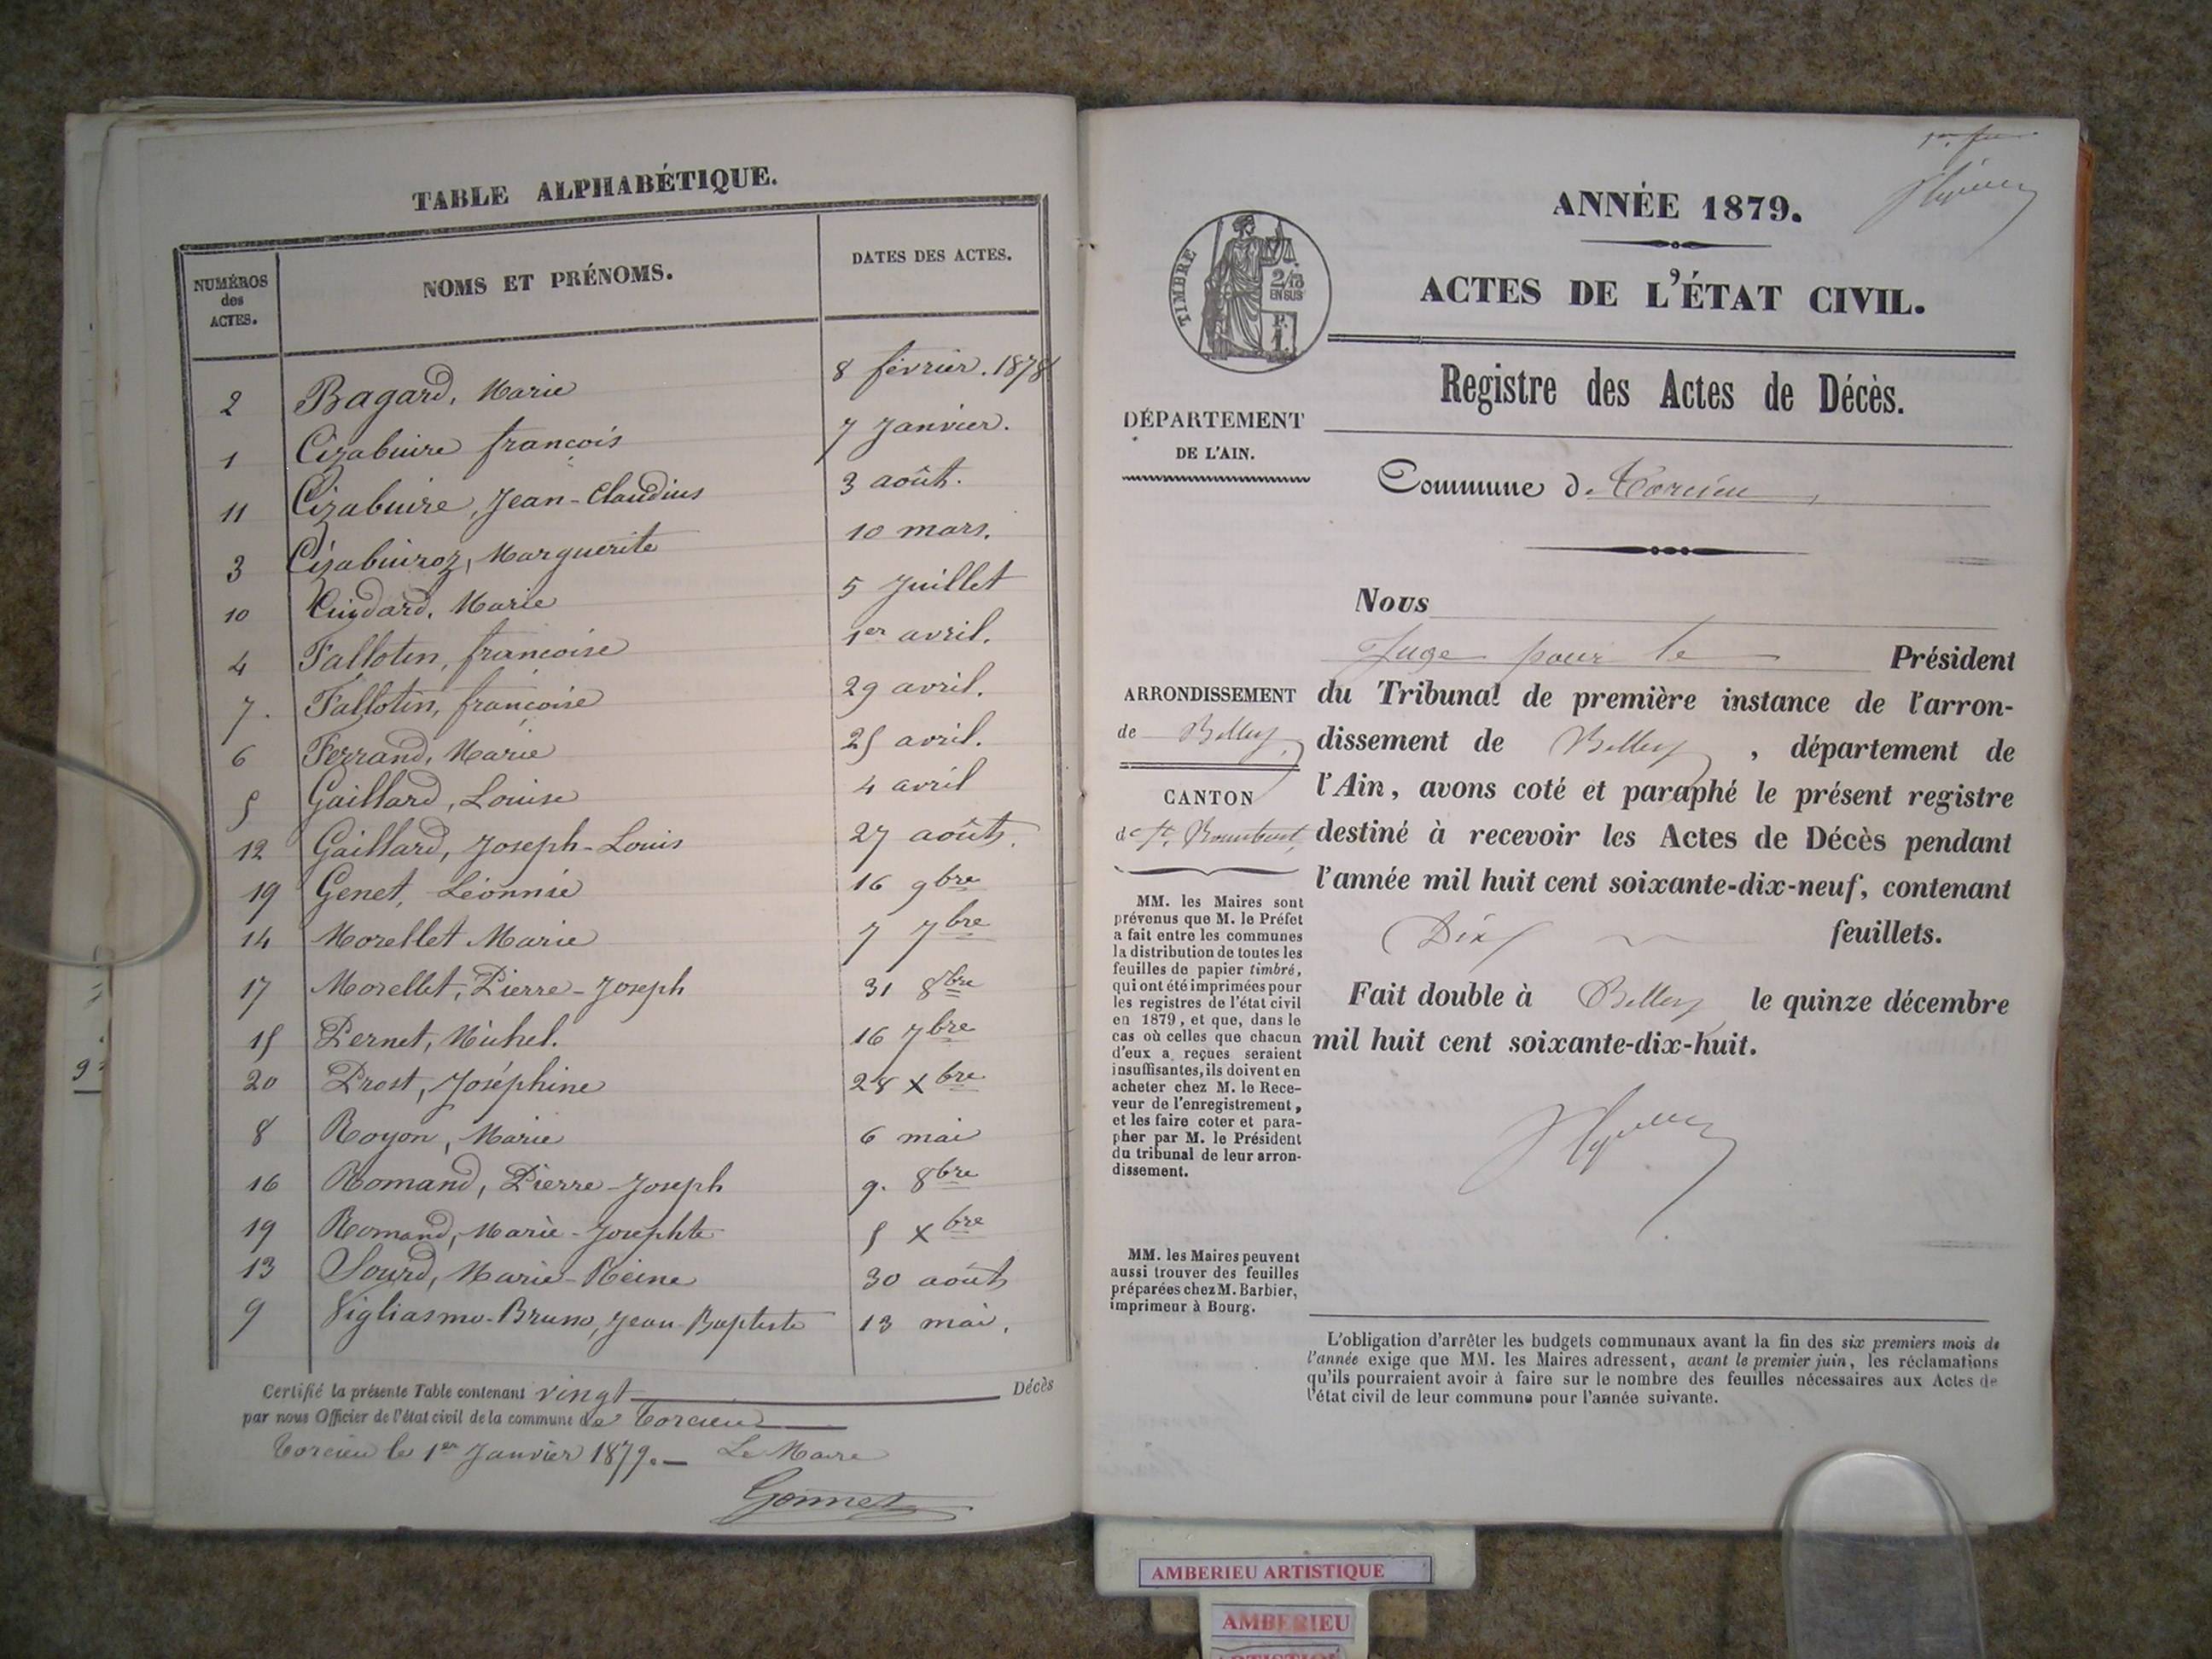 TABLE ALPHABÉTIQUE.
NUMÉROS des ACTES.
NOMS ET PRÉNOMS.
DATES DES ACTES.
2 Bagard, Marie 8 février. 1878
1 Cizabuire françois 7 Janvier.
11 Cizabuire, Jean-Claudius 3 août.
3 Cizabuiroz, Marguerite 10 mars.
10 Marie 5 Juillet
4 Fallotin, françoise 1er avril.
7. Fallotin, françoise 29 avril.
6 Ferrand, Marie 25 avril.
5 Gaillard, Louise 4 avril
12 Gaillard, Joseph-Louis 27 août.
19 Genet, Léonnie 16 9bre
14 Morellet Marie 7 7bre
17 Morellet, Pierre-Joseph 31 8bre
15 Pernet, Michel. 16 7bre
20 Prost, Joséphine 28 Xbre
8 Royon, Marie 6 mai
16 Romand, Pierre-Joseph 9. 8bre
19 Romand, Marie-Josephte 5 Xbre
13 Sourd, Marie-Reine 30 août
9 Vigliasmo-Bruno, Jean-Baptiste 13 mai.
Certifié la présente Table contenant vingt Décès
par nous Officier de l'état civil de la commune de Torcieu
Torcieu le 1er Janvier 1879. — Le Maire
Gonnet
ANNÉE 1879.
ACTES DE L'ÉTAT CIVIL.
TIMBRE
2/10
EN SUS
Registre des Actes de Décès.
DÉPARTEMENT
DE L'AIN.
Commune de Torcieu,
Nous
Juge pour le Président
ARRONDISSEMENT
de Belley,
CANTON
de St. Rambert,
du Tribunal de première instance de l'arron-
dissement de Belley, département de
l'Ain, avons coté et paraphé le présent registre
destiné à recevoir les Actes de Décès pendant
l'année mil huit cent soixante-dix-neuf, contenant
Dix feuillets.
Fait double à Belley le quinze décembre
mil huit cent soixante-dix-huit.
MM. les Maires sont
prévenus que M. le Préfet
a fait entre les communes
la distribution de toutes les
feuilles de papier timbré,
qui ont été imprimées pour
les registres de l'état civil
en 1879, et que, dans le
cas où celles que chacun
d'eux a reçues seraient
insuffisantes, ils doivent en
acheter chez M. le Rece-
veur de l'enregistrement,
et les faire coter et para-
pher par M. le Président
du tribunal de leur arron-
dissement.
MM. les Maires peuvent
aussi trouver des feuilles
préparées chez M. Barbier,
imprimeur à Bourg.
L'obligation d'arrêter les budgets communaux avant la fin des six premiers mois de
l'année exige que MM. les Maires adressent, avant le premier juin, les réclamations
qu'ils pourraient avoir à faire sur le nombre des feuilles nécessaires aux Actes de
l'état civil de leur commune pour l'année suivante.
AMBERIEU ARTISTIQUE
AMBERIEU
ARTISTIQUE